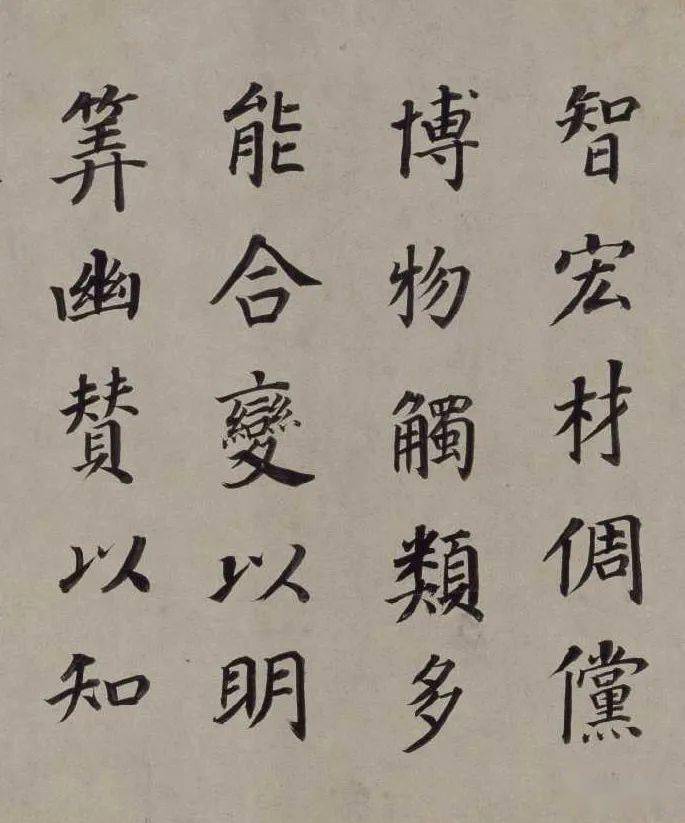 智宏材倜儻
博物觸類多
能合變以明
筭幽贊以知